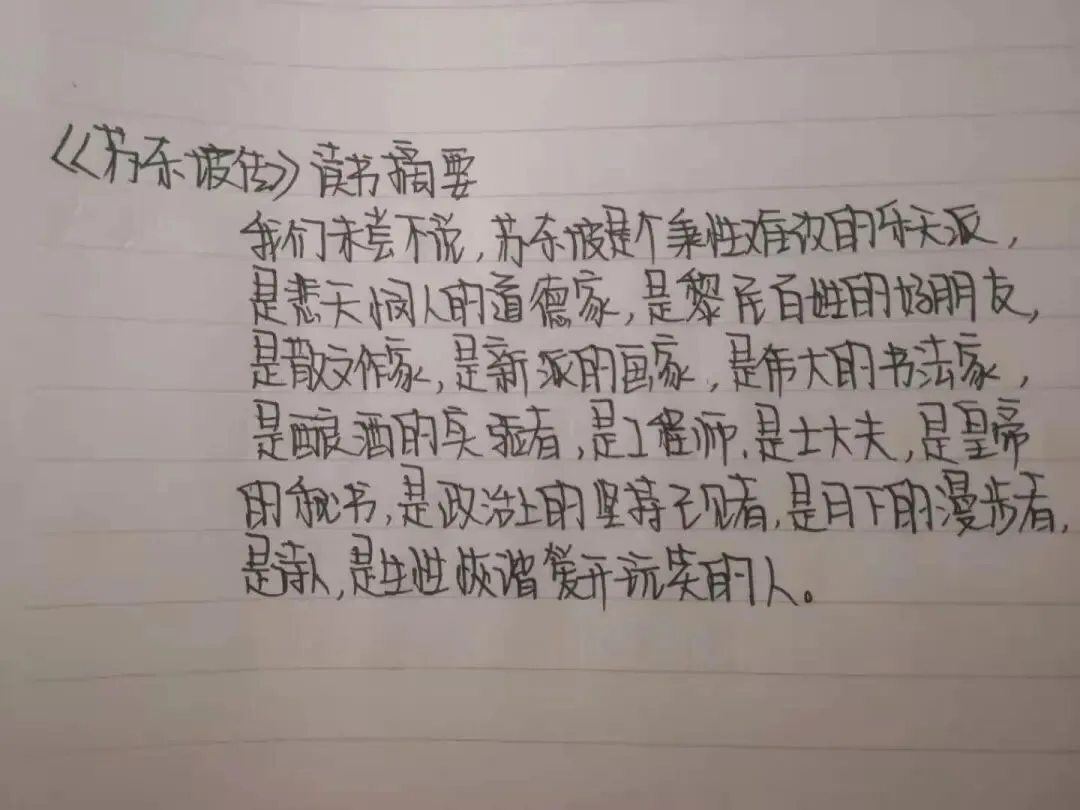 《苏东坡传》读书摘要
我们未尝不说,苏东坡是个秉性难改的乐天派,
是悲天悯人的道德家,是黎民百姓的好朋友,
是散文作家,是新派的画家,是伟大的书法家,
是酿酒的实验者,是工程师,是士大夫,是皇帝
的秘书,是政治上的坚持己见者,是月下的漫步者,
是诗人,是生性恢谐爱开玩笑的人。